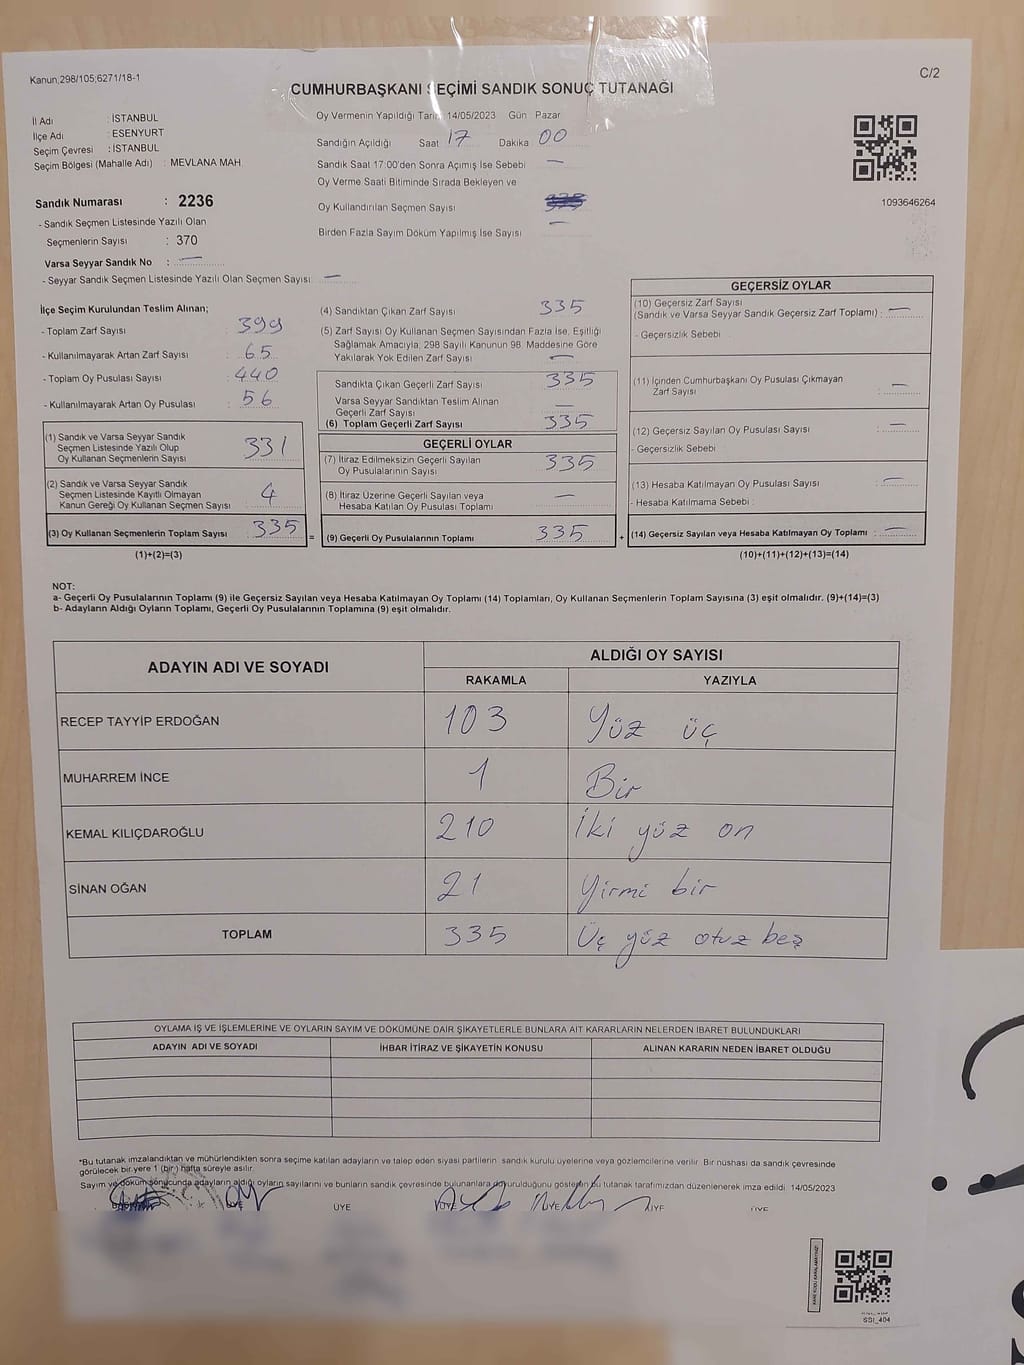 Kanun,298/105;6271/18-1
C/2
CUMHURBAŞKANI SEÇİMİ SANDIK SONUÇ TUTANAĞI
İl Adı : İSTANBUL
İlçe Adı : ESENYURT
Seçim Çevresi : İSTANBUL
Seçim Bölgesi (Mahalle Adı) : MEVLANA MAH
Sandık Numarası : 2236
- Sandık Seçmen Listesinde Yazılı Olan
Seçmenlerin Sayısı : 370
Varsa Seyyar Sandık No : —
- Seyyar Sandık Seçmen Listesinde Yazılı Olan Seçmen Sayısı: —
Oy Vermenin Yapıldığı Tarih 14/05/2023 Gün Pazar
Sandığın Açıldığı Saat 17 Dakika 00
Sandık Saat 17:00'den Sonra Açımış İse Sebebi —
Oy Verme Saati Bitiminde Sırada Bekleyen ve
Oy Kullandırılan Seçmen Sayısı
Birden Fazla Sayım Döküm Yapılmış İse Sayısı —
1093646264
İlçe Seçim Kurulundan Teslim Alınan;
- Toplam Zarf Sayısı : 399
- Kullanılmayarak Artan Zarf Sayısı : 65
- Toplam Oy Pusulası Sayısı : 440
- Kullanılmayarak Artan Oy Pusulası : 56
(1) Sandık ve Varsa Seyyar Sandık
Seçmen Listesinde Yazılı Olup
Oy Kullanan Seçmenlerin Sayısı 331
(2) Sandık ve Varsa Seyyar Sandık
Seçmen Listesinde Kayıtlı Olmayan
Kanun Gereği Oy Kullanan Seçmen Sayısı 4
(3) Oy Kullanan Seçmenlerin Toplam Sayısı 335 =
(1)+(2)=(3)
(4) Sandıktan Çıkan Zarf Sayısı 335
(5) Zarf Sayısı Oy Kullanan Seçmen Sayısından Fazla İse, Eşitliği
Sağlamak Amacıyla; 298 Sayılı Kanunun 98. Maddesine Göre
Yakılarak Yok Edilen Zarf Sayısı —
Sandıkta Çıkan Geçerli Zarf Sayısı 335
Varsa Seyyar Sandıktan Teslim Alınan
Geçerli Zarf Sayısı —
(6) Toplam Geçerli Zarf Sayısı 335
GEÇERLİ OYLAR
(7) İtiraz Edilmeksizin Geçerli Sayılan
Oy Pusulalarının Sayısı 335
(8) İtiraz Üzerine Geçerli Sayılan veya
Hesaba Katılan Oy Pusulası Toplamı —
(9) Geçerli Oy Pusulalarının Toplamı 335 +
GEÇERSİZ OYLAR
(10) Geçersiz Zarf Sayısı
(Sandık ve Varsa Seyyar Sandık Geçersiz Zarf Toplamı) : —
- Geçersizlik Sebebi
(11) İçinden Cumhurbaşkanı Oy Pusulası Çıkmayan
Zarf Sayısı : —
(12) Geçersiz Sayılan Oy Pusulası Sayısı : —
- Geçersizlik Sebebi :
(13) Hesaba Katılmayan Oy Pusulası Sayısı : —
- Hesaba Katılmama Sebebi :
(14) Geçersiz Sayılan veya Hesaba Katılmayan Oy Toplamı : —
(10)+(11)+(12)+(13)=(14)
NOT:
a- Geçerli Oy Pusulalarının Toplamı (9) ile Geçersiz Sayılan veya Hesaba Katılmayan Oy Toplamı (14) Toplamları, Oy Kullanan Seçmenlerin Toplam Sayısına (3) eşit olmalıdır. (9)+(14)=(3)
b- Adayların Aldığı Oyların Toplamı, Geçerli Oy Pusulalarının Toplamına (9) eşit olmalıdır.
ADAYIN ADI VE SOYADI ALDIĞI OY SAYISI
RAKAMLA YAZIYLA
RECEP TAYYİP ERDOĞAN 103 Yüz üç
MUHARREM İNCE 1 Bir
KEMAL KILIÇDAROĞLU 210 İki yüz on
SİNAN OĞAN 21 Yirmi bir
TOPLAM 335 Üç yüz otuz beş
OYLAMA İŞ VE İŞLEMLERİNE VE OYLARIN SAYIM VE DÖKÜMÜNE DAİR ŞİKAYETLERLE BUNLARA AİT KARARLARIN NELERDEN İBARET BULUNDUKLARI
ADAYIN ADI VE SOYADI İHBAR İTİRAZ VE ŞİKAYETİN KONUSU ALINAN KARARIN NEDEN İBARET OLDUĞU
*Bu tutanak imzalandıktan ve mühürlendikten sonra seçime katılan adayların ve talep eden siyasi partilerin sandık kurulu üyelerine veya gözlemcilerine verilir. Bir nüshası da sandık çevresinde
görülecek bir yere 1 (bir) hafta süreyle asılır.
Sayım ve döküm sonucunda adayların aldığı oyların sayılarını ve bunların sandık çevresinde bulunanlara duyurulduğunu gösteren bu tutanak tarafımızdan düzenlenerek imza edildi. 14/05/2023
ÜYE ÜYE ÜYE ÜYE ÜYE
SSI_404